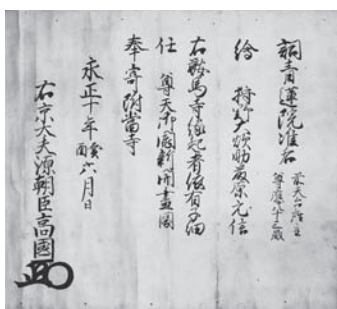 詞青蓮院准后 前天台座主
尊應八十二歳
繪 狩野大炊助藤原元信
右鞍馬寺縁起者依有子細
任 尊天御感新開畫圖
奉寄附當寺
永正十年 癸酉 六月日
右京大夫源朝臣高國